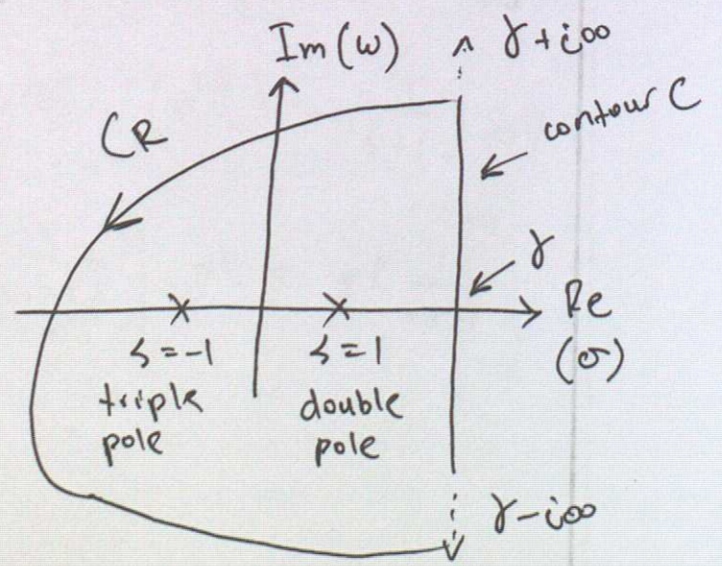 Im(ω)
γ+i∞
CR
contour C
γ
Re
(σ)
s=-1
triple
pole
s=1
double
pole
γ-i∞